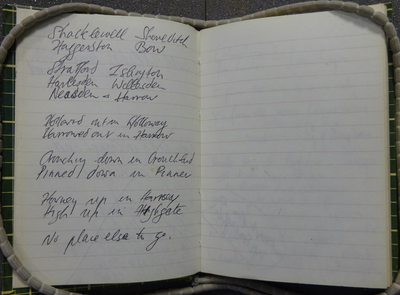 Shacklewell Shoreditch
Haggerston Bow
Stratford Islington
Harlesden Willesden
Neasden - Harrow
Hollowed out in Holloway
Harrowed out in Harrow
Crouching down in Crouch End
Pinned down in Pinner
Horney up in Hornsey
High up in Highgate
No place else to go.